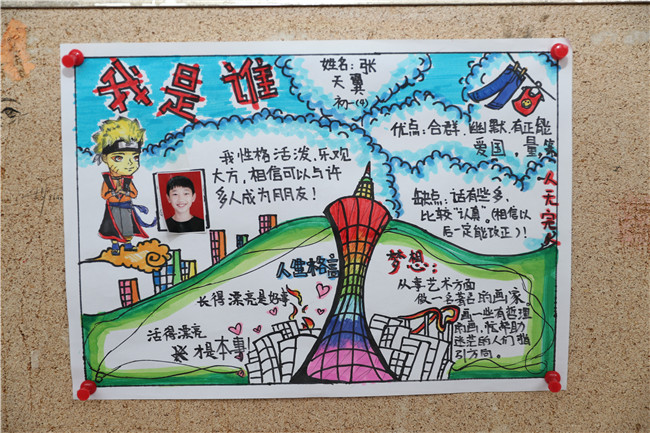 我是谁
姓名：张
天翼
初一(4)
优点：合群，幽默，有正能
爱国，量，等
我性格活泼，乐观
大方，相信可以与许
多人成为朋友！
缺点：话有些多，
比较"认真"。(相信以
后一定能改正)！
人无完人
人生格言
长得漂亮是好事
活得漂亮
才是本事！
梦想：
从事艺术方面
做一名著名的画家。
画一些有哲理
的画，能帮助
迷茫的人们指
引方向。